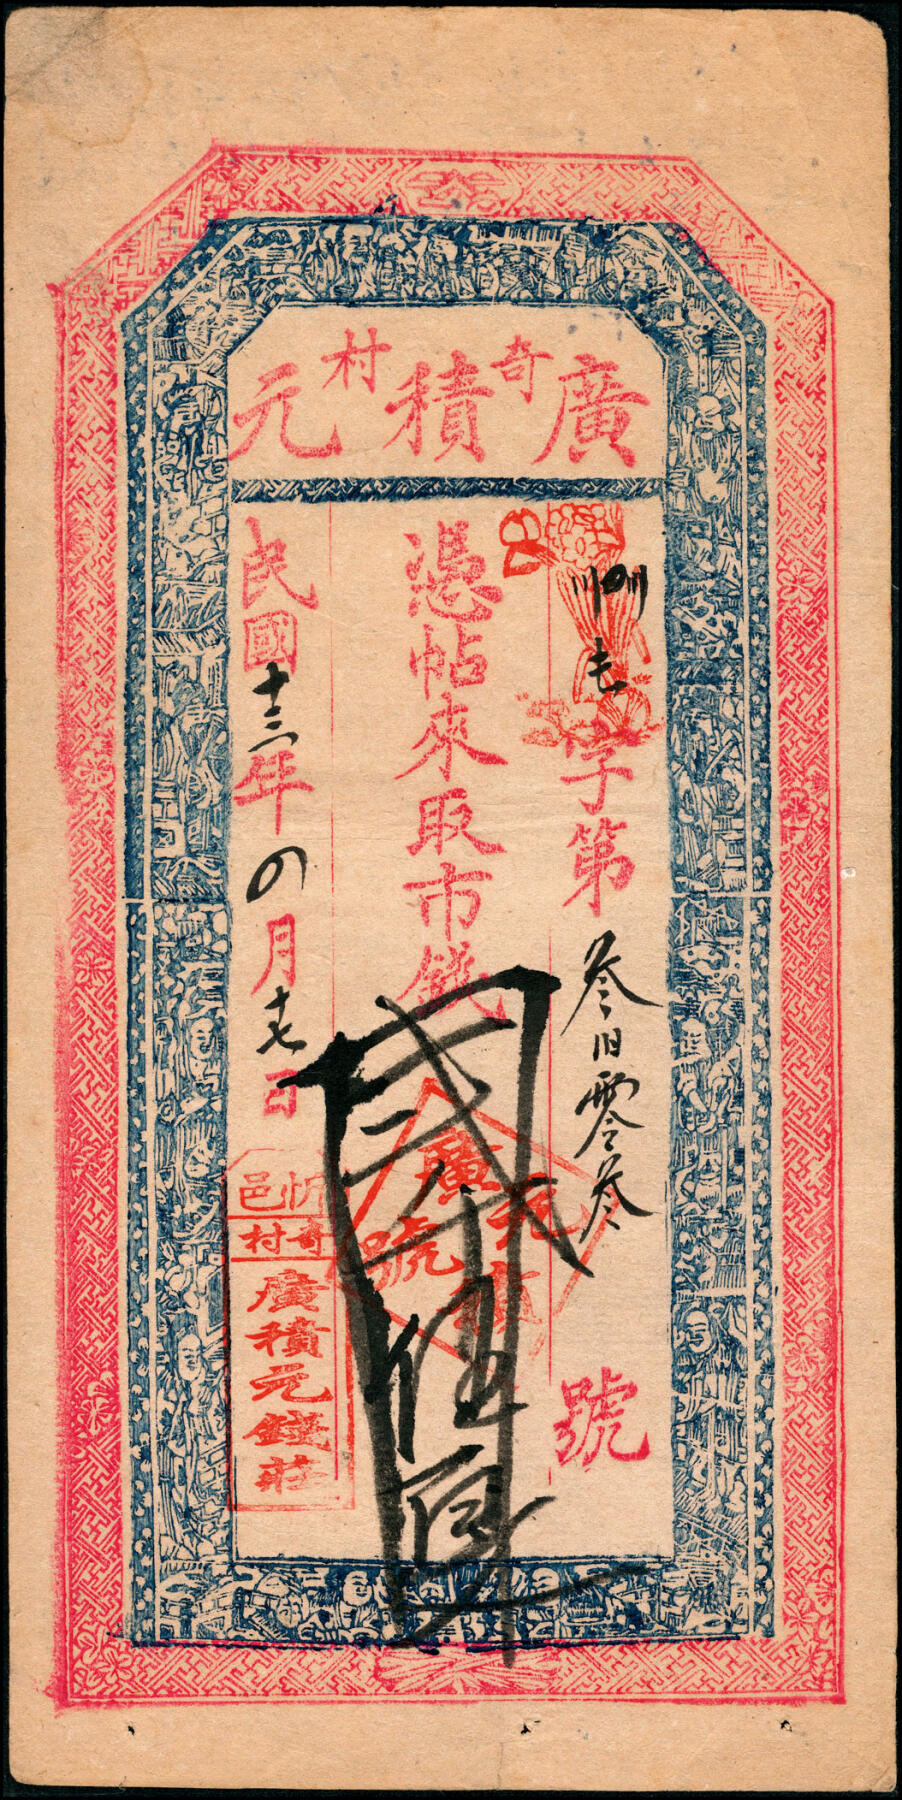 廣積元
奇村
字第叁旧零叁號
憑帖來取市錢弍千伍百
民國十三年四月十七日
廣元積號
忻邑
奇村
廣積元錢莊